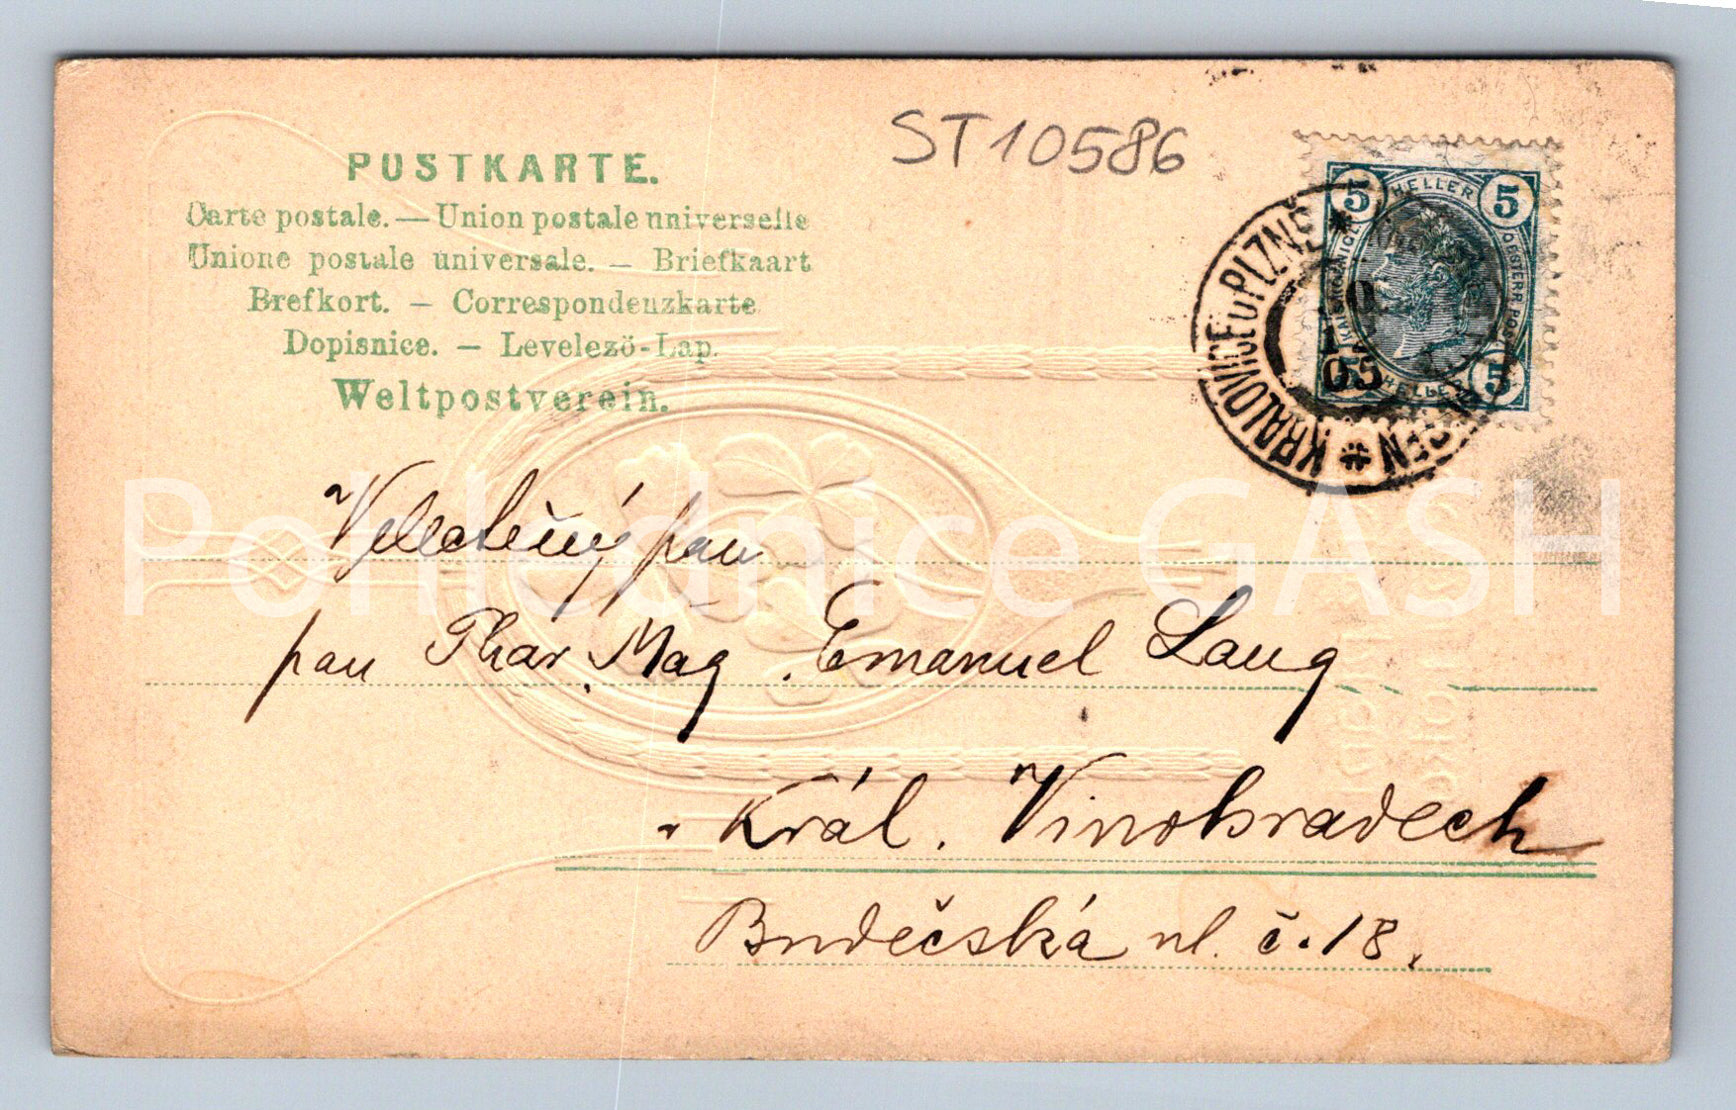 ST10586
POSTKARTE.
Carte postale. — Union postale universelle
Unione postale universale. — Briefkaart
Brefkort. — Correspondenzkarte
Dopisnice. — Levelezö-Lap.
Weltpostverein.
5 HELLER 5
ÖSTERR. POST
5 HELLER 5
KRALOVICE U PLZNĚ
05
Velectěný pan
pan Phar. Mag. Emanuel Lang
v Král. Vinohradech
Budečská ul. č. 18.
Pohlednice GASH